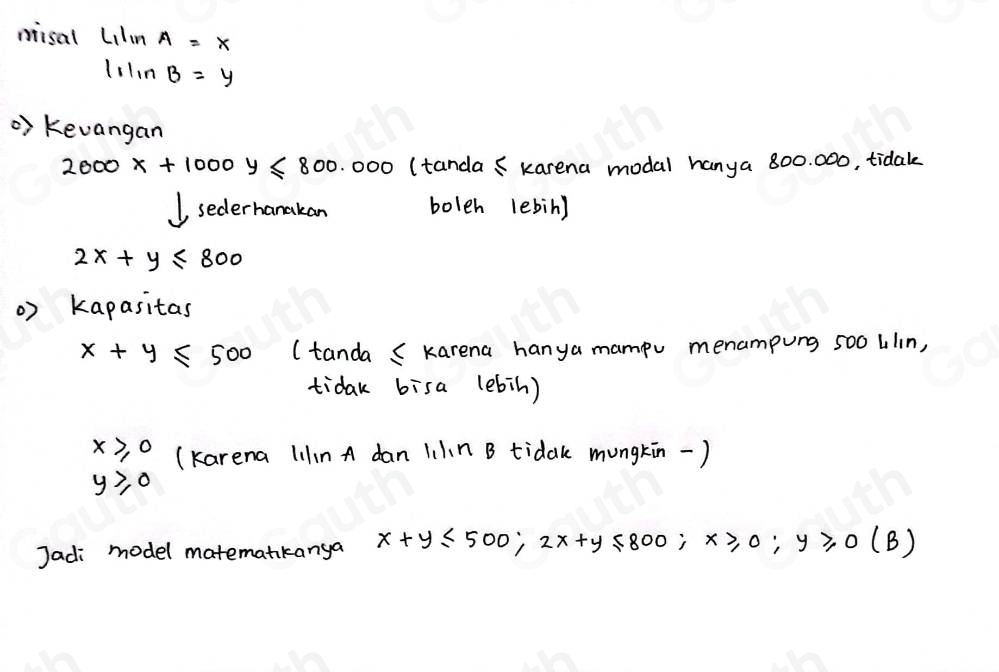 misal Lilin A = x
lilin B = y
o> Keuangan
2000 x + 1000 y ⩽ 800.000 (tanda ⩽ karena modal hanya 800.000, tidak
↓ sederhanakan boleh lebih)
2x + y ⩽ 800
o> Kapasitas
x + y ⩽ 500 (tanda ⩽ karena hanya mampu menampung 500 lilin,
tidak bisa lebih)
x ⩾ 0 (Karena lilin A dan lilin B tidak mungkin -)
y ⩾ 0
Jadi model matematikanya x + y ⩽ 500 ; 2x + y ⩽ 800 ; x ⩾ 0 ; y ⩾ 0 (B)